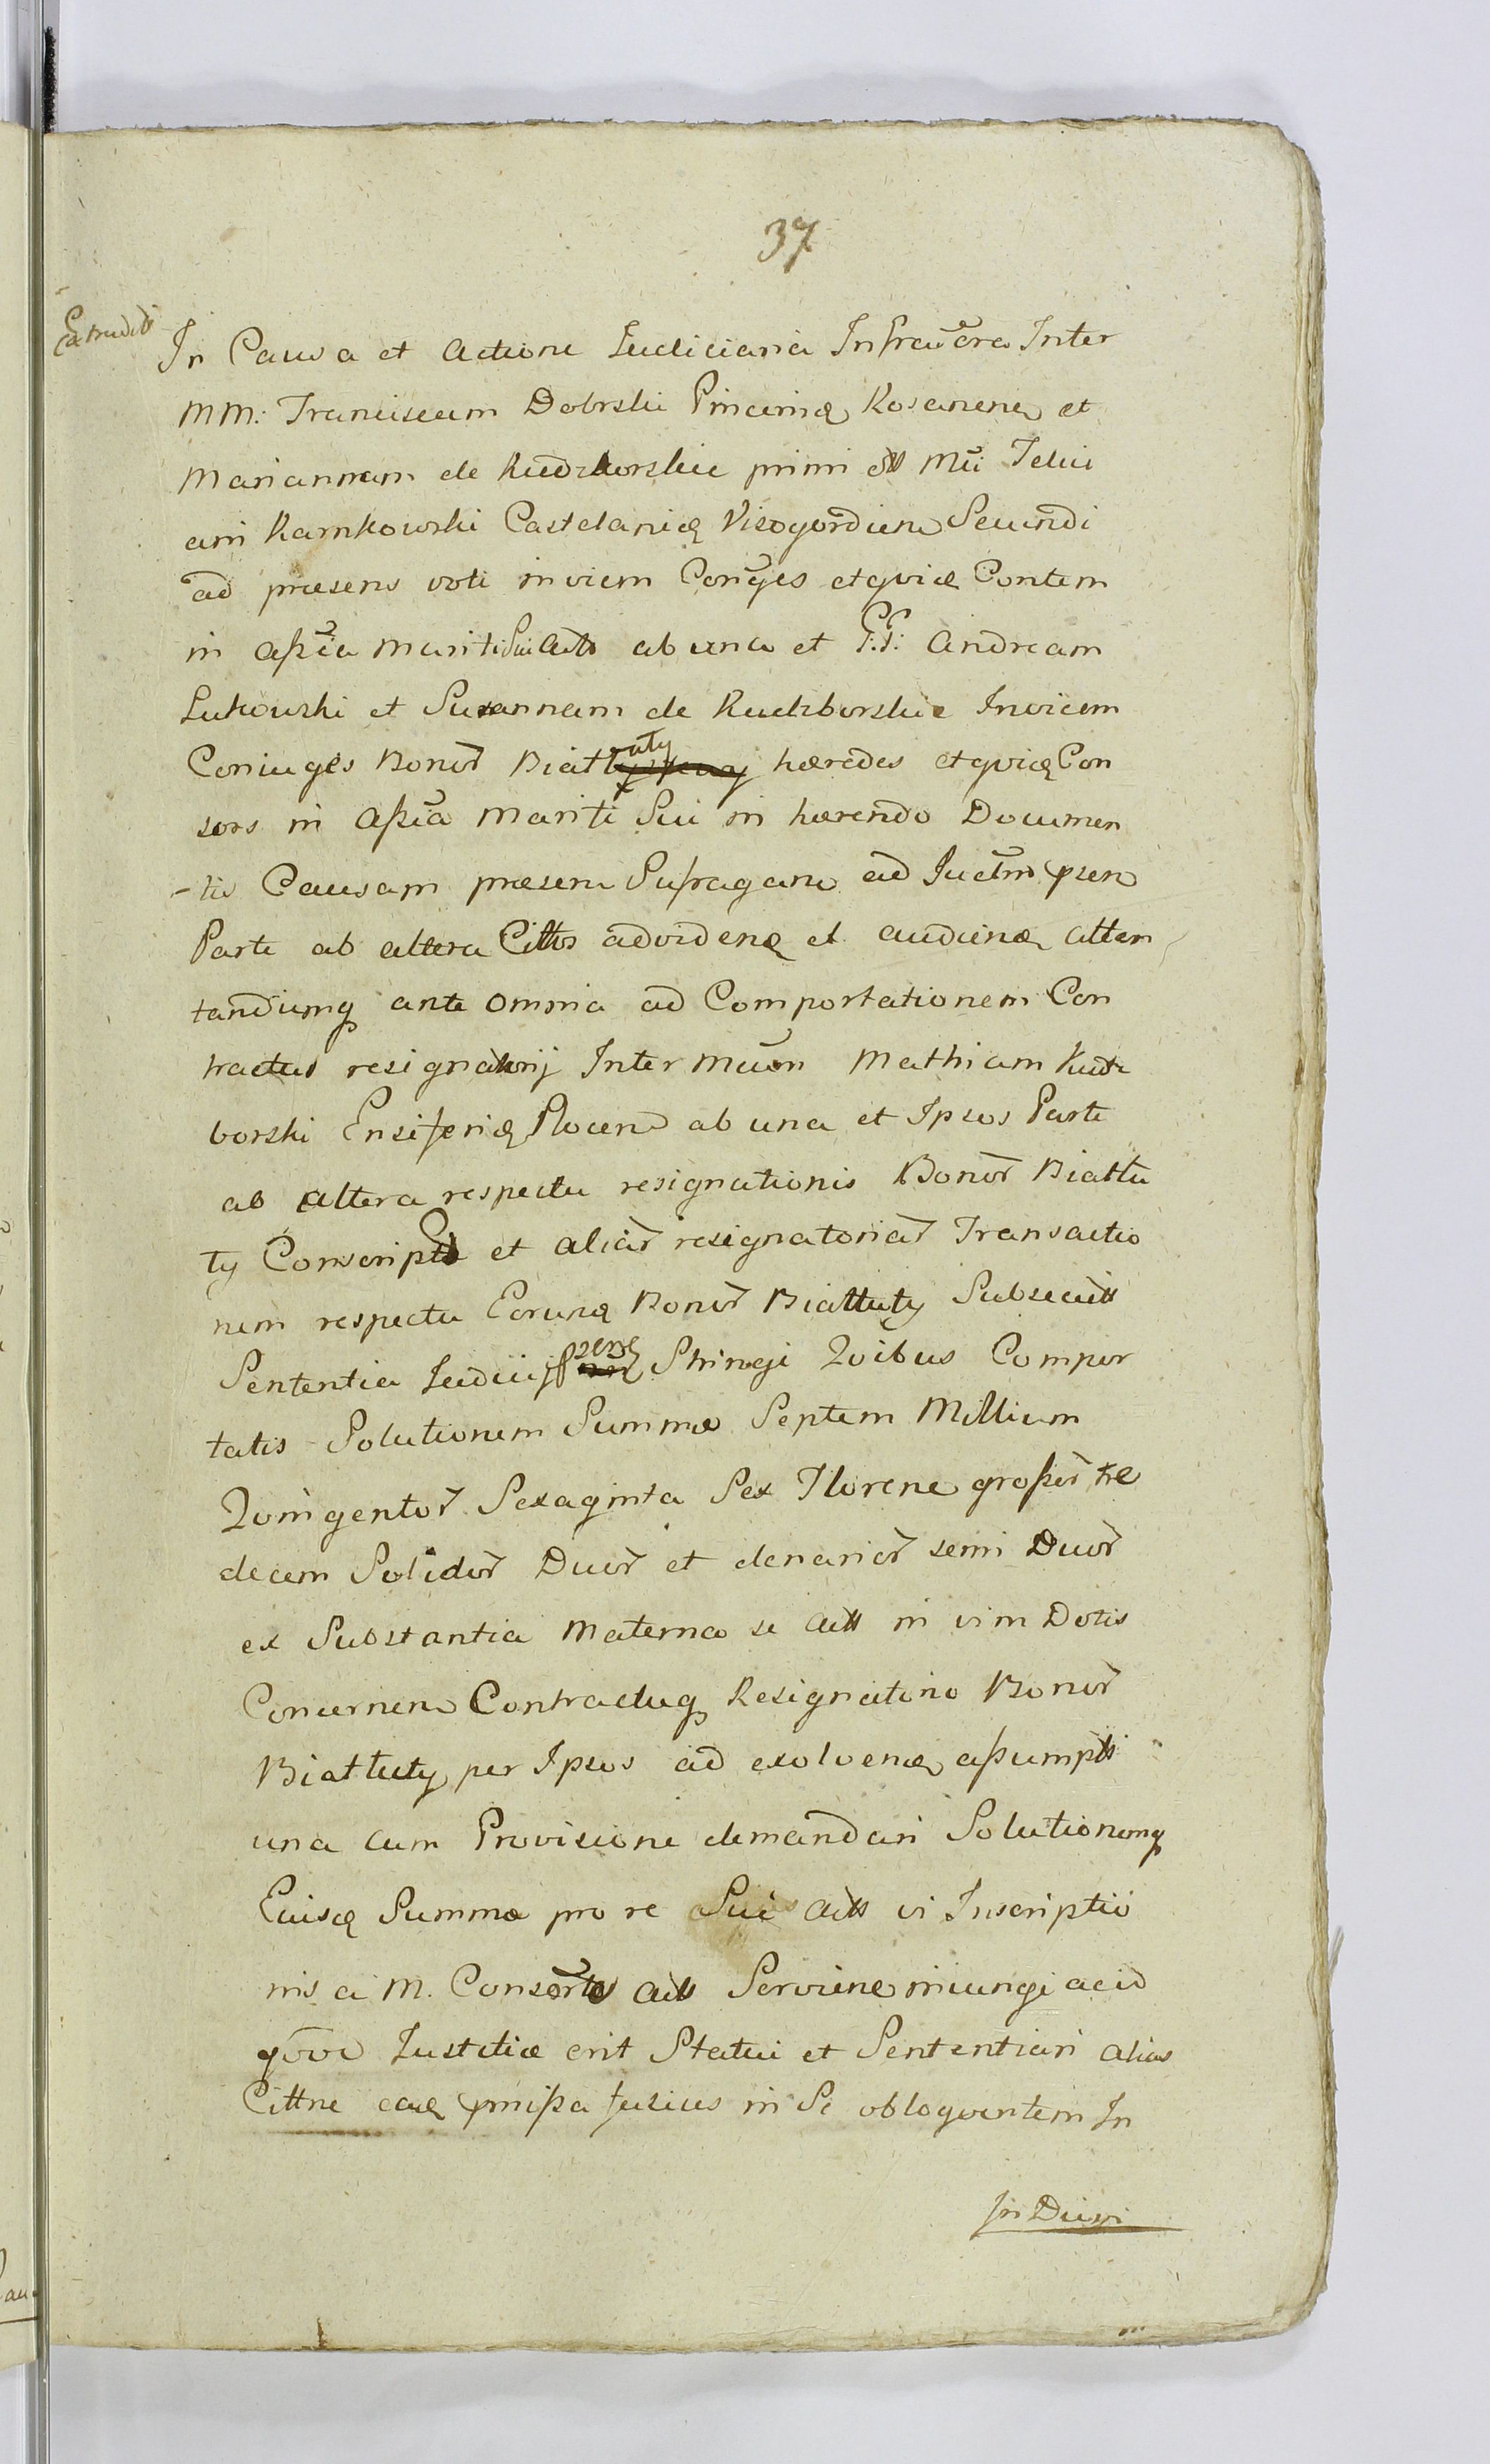 37
Extradit
In Causa et Actione Iudiciaria Infrascra Inter
MM: Franciscum Dobrski Pincernę Rosanen et
Mariannam de Rudzborskie primi oll Mci Felici
ani Karnkowski Castelanię Visogordien Secundi
ad præsens voti invicem Conges etqvidę Contem
in aßia Mariti Sui Actts ab una et GG: Andream
Lukowski et Susannam de Rudzborskie Invicem
Coniuges Bonor Biattuty hæredes etqvidę Con
sors in aßia Mariti Sui in hærendo Documen
-tis Causam præsen Sufragan ad Iuctm psen
Parte ab altera Cittos advidenę et audienę atten
tandumq ante omnia ad Comportationem Con
tractus resignatorij Inter Mcum Mathiam Rudz
borski Ensiferię Plocen ab una et Ipsos Parte
ab altera respectu resignationis Bonor Biattu
ty Conscripti et aliar resignatoriar Transactio
nem respectu Eorunę Bonor Biattuty Subsecutt
Sententia Iudicij psenę Stringi Qvibus Compor
tatis Solutionem Summæ Septem Millium
Qvingentor Sexaginta Sex Floren großor tre
decem Solidor Duor et denarior semi Duor
ex Substantia Materna se Actt in vim Dotis
Concernen Contractuq Resignatorio Bonor
Biattuty per Ipsos ad exolvenę aßumptt
una cum Provisione demandari Solutionemq
Eiusę Summæ pro re Sui Actt vi Inscriptio
nis a M. Consorte Actt Servien iniungi ac id
qvod Iustitiæ erit Statui et Sententiari alias
Cittne eaę pmißa fusius in Se obloqventem In
In Duxi